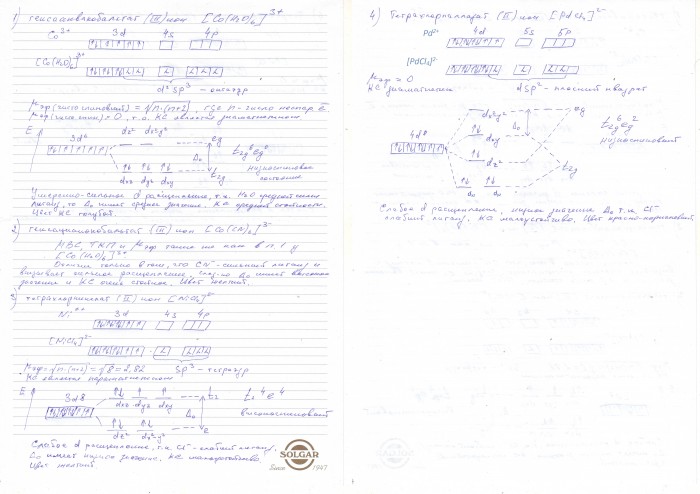 1) гексааквакобальтат (III) ион [Co(H₂O)₆]³⁺
3d 4s 4p
Co³⁺
[Co(H₂O)₆]³⁺
d²sp³ - октаэдр
μэф (чисто спиновый) = √n·(n+2), где n - число неспар. ē
μэф (чисто спин.) = 0, т.к. КС является диамагнитным.
E 3d⁶ dz² dx²y² eg
Δ₀ t₂g⁶eg⁰
низкоспиновое
dxz dyz dxy t₂g состояние
Умеренно-сильное d расщепление, т.к. H₂O средней силы
лиганд, то Δ₀ имеет среднее значение. КС средней стойкости.
Цвет КС голубой.
2) гексацианокобальтат (III) ион [Co(CN)₆]³⁻
МВС, ТКП и μэф такие же как в п. 1 у
[Co(H₂O)₆]³⁺
Отличие только в том, что CN⁻ - сильный лиганд и
вызывает сильное расщепление, Δ₀ имеет высокое
значение и КС очень стойкое. Цвет желтый.
3) тетрахлороникелат (II) ион [NiCl₄]²⁻
3d 4s 4p
Ni⁺⁺
[NiCl₄]²⁻
μэф = √n·(n+2) = √8 = 2,82 sp³ - тетраэдр
КС является парамагнитным
E 3d8 t₂ t₂⁴e⁴
dxz dyz dxy высокоспиновый
Δ₀
dz² dx²y² e
Слабое d расщепление, т.к. Cl⁻ - слабый лиганд.
Δ₀ имеет низкое значение. КС малоустойчиво.
Цвет желтый.
SOLGAR
Since 1947
4) Тетрахлоропалладат (II) ион [PdCl₄]²⁻
4d 5s 5p
Pd²⁺
[PdCl₄]²⁻
μэф = 0
КС диамагнитен dsp² - плоский квадрат
dx²y² eg
Δ₀ t₂g⁶eg²
4d⁸ dxy низкоспиновый
dz²
t₂g
Слабое d расщепление, низкое значение Δ₀ т.к. Cl⁻
слабый лиганд. КС малоустойчиво. Цвет красно-коричневый.